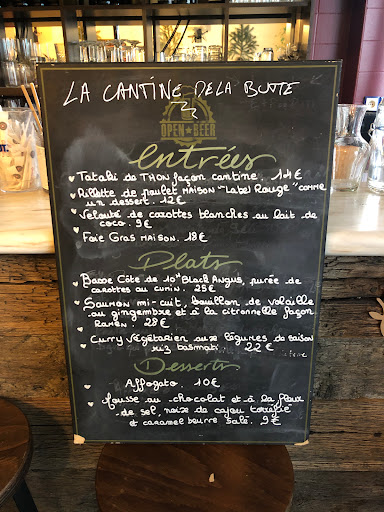 LA CANTINE DE LA BUTTE
OPEN★BEER
Entrées
Tataki de THON façon cantine. 14€
Rillette de poulet MAISON "Label Rouge" COMME
un dessert. 12€
Velouté de carottes blanches au lait de
coco. 9€
Foie Gras MAISON. 18€
Plats
Basse Côte de Black Angus, purée de
carottes au cumin. 25€
Saumon mi-cuit, bouillon de volaille
au gingembre et à la citronnelle façon
Ramen. 28€
Curry Végétarien aux légumes de saison
riz basmati. 22€
Desserts
Affogato. 10€
Mousse au chocolat et à la fleur
de sel, noix de cajou torréfié
et caramel beurre salé. 9€